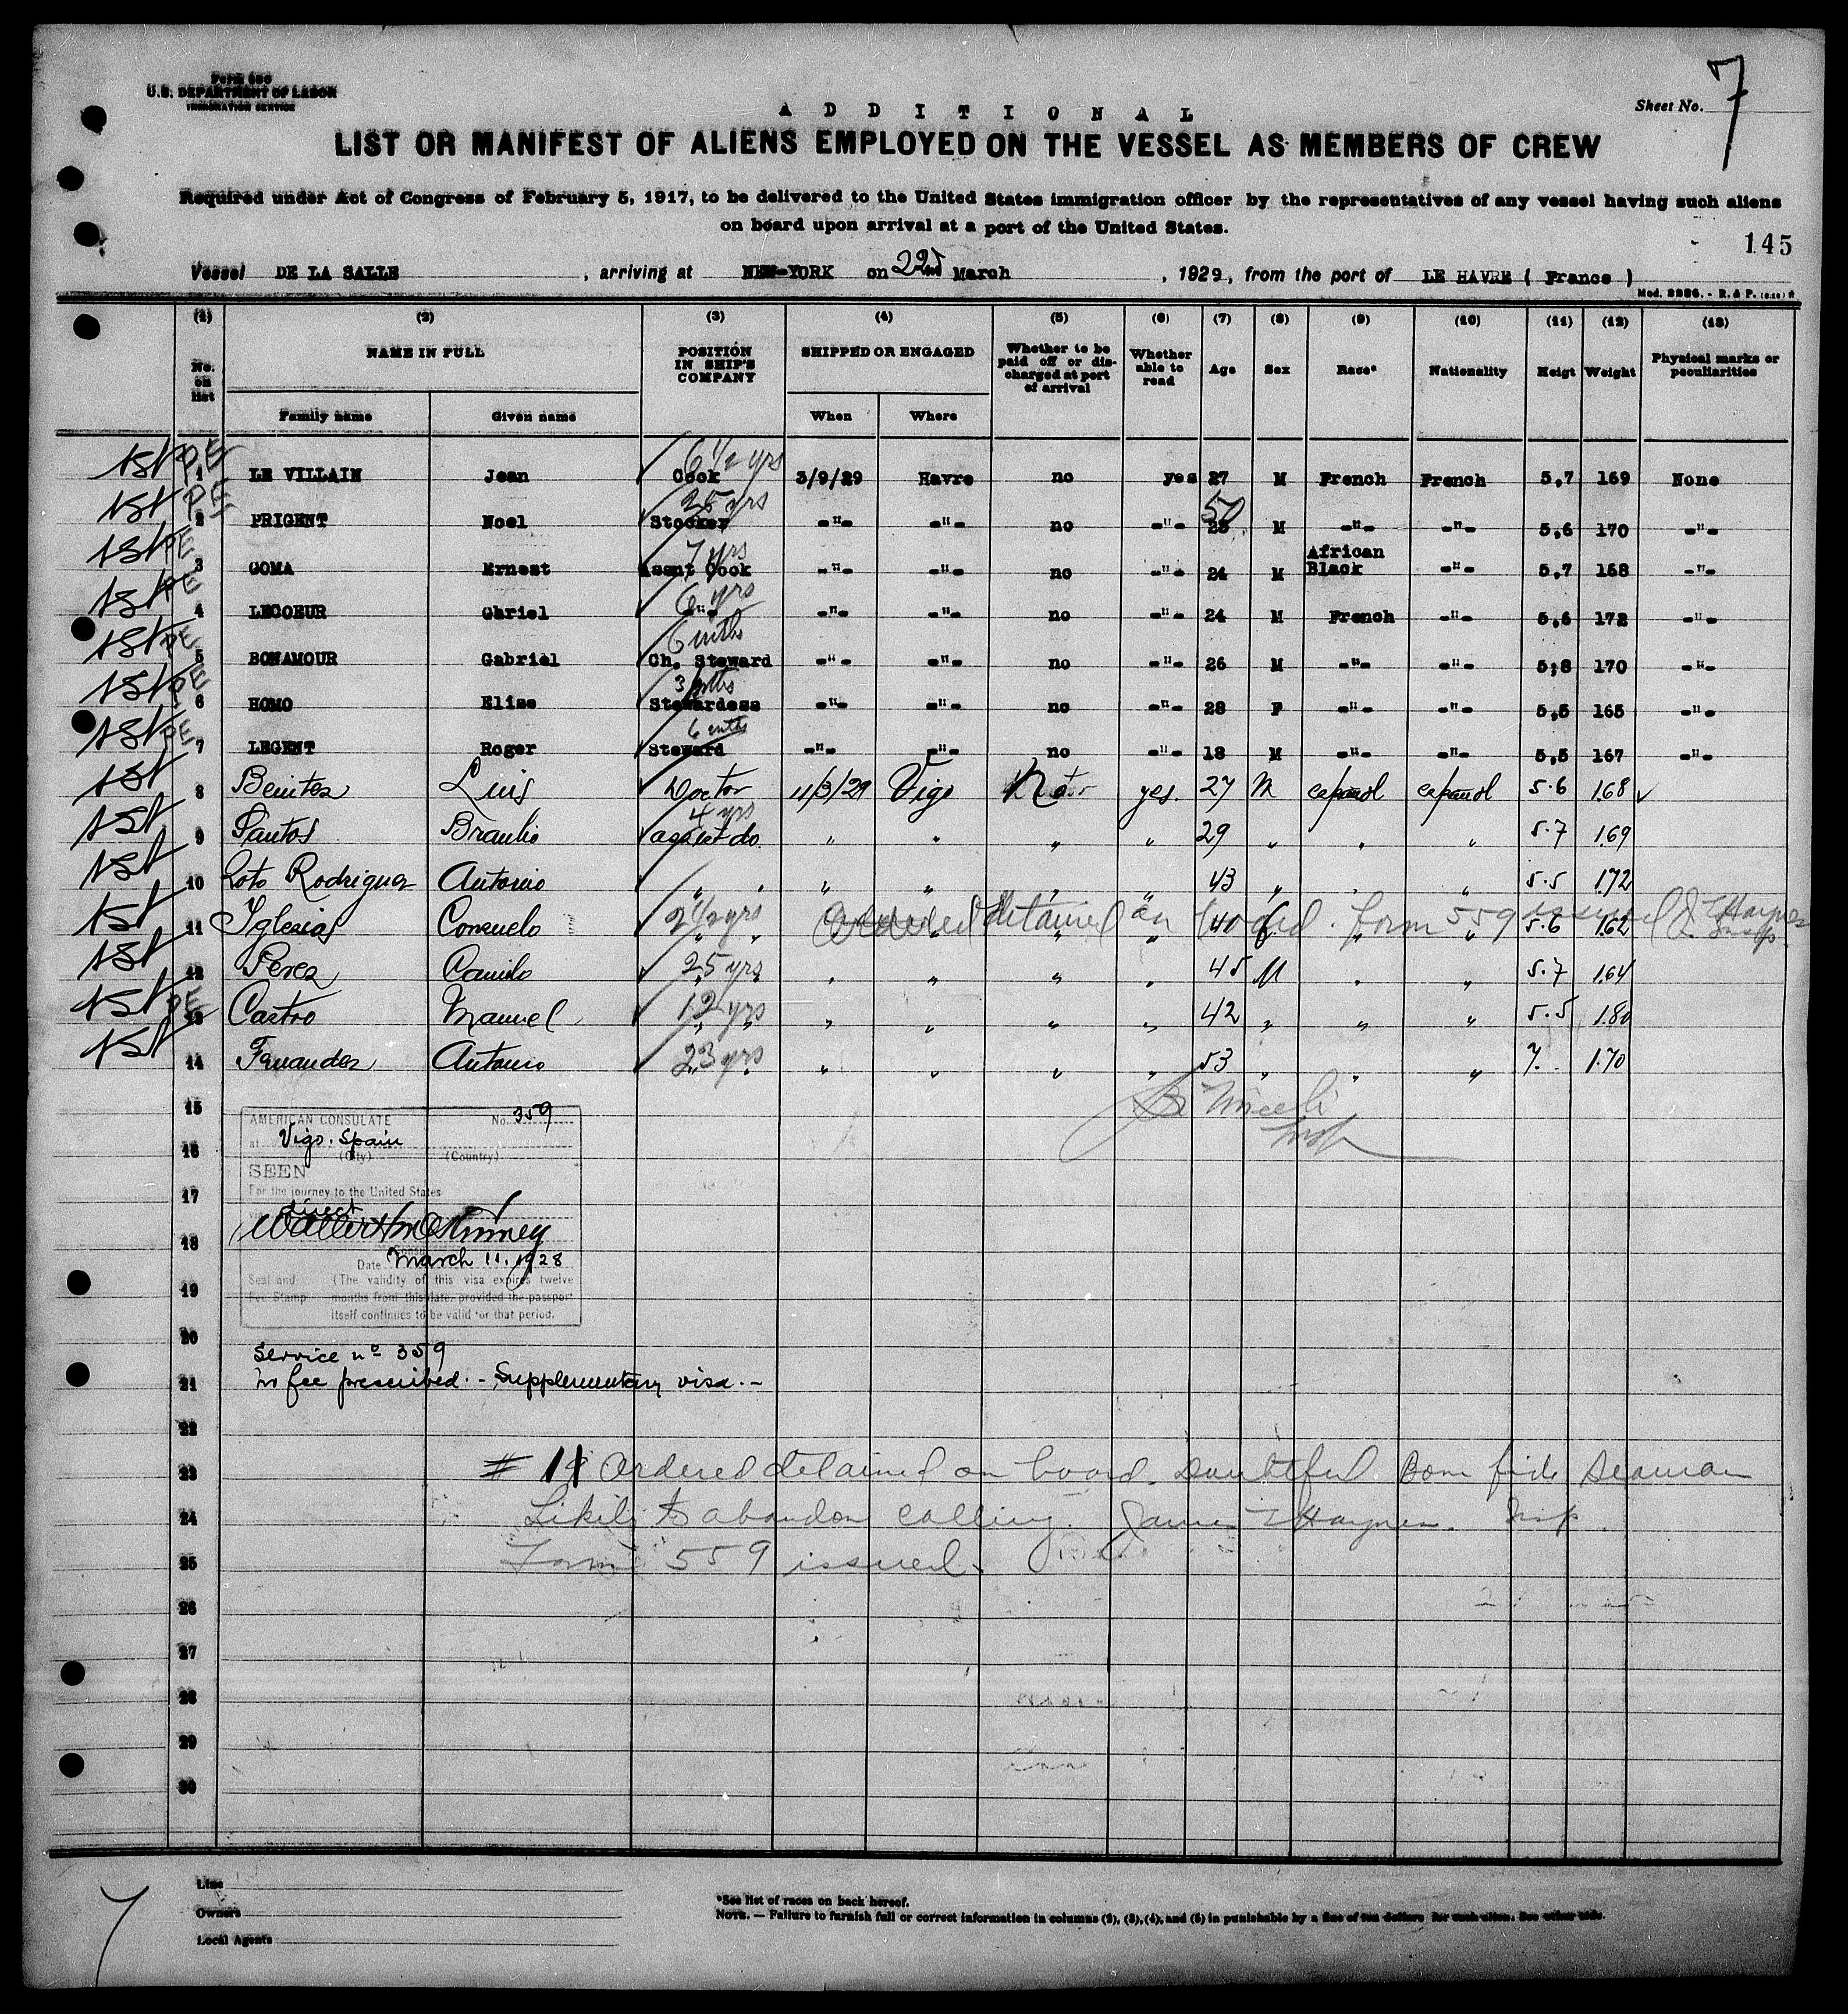 Form 680
U.S. DEPARTMENT OF LABOR
IMMIGRATION SERVICE
Sheet No. 7
ADDITIONAL
LIST OR MANIFEST OF ALIENS EMPLOYED ON THE VESSEL AS MEMBERS OF CREW
Required under Act of Congress of February 5, 1917, to be delivered to the United States immigration officer by the representatives of any vessel having such aliens
on board upon arrival at a port of the United States.
145
Vessel DE LA SALLE , arriving at NEW-YORK on 22nd March , 1929, from the port of LE HAVRE ( France )
(1) (2) (3) (4) (5) (6) (7) (8) (9) (10) (11) (12) (13)
No. on list NAME IN FULL POSITION IN SHIP'S COMPANY SHIPPED OR ENGAGED Whether to be paid off or discharged at port of arrival Whether able to read Age Sex Race* Nationality Heigt Weight Physical marks or peculiarities
Family name Given name When Where
1st PE 1 LE VILLAIN Jean 6 1/2 yrs Cook 3/9/29 Havre no yes 27 M French French 5,7 169 None
1st PE 2 PRIGENT Noel 25 yrs Stocker -"- -"- no -"- 50 M -"- -"- 5,6 170 -"-
1st PE 3 GOMA Ernest 7 yrs Assnt Cook -"- -"- no -"- 24 M African Black -"- 5,7 168 -"-
1st PE 4 LECOEUR Gariel 6 yrs -"- -"- -"- no -"- 24 M French -"- 5,6 172 -"-
1st PE 5 BONAMOUR Gabriel 6 mths Ch. Steward -"- -"- no -"- 26 M -"- -"- 5,8 170 -"-
1st PE 6 HOMO Elise 3 mths Stewardess -"- -"- no -"- 28 F -"- -"- 5,5 165 -"-
1st PE 7 LEGENT Roger 6 mths Steward -"- -"- no -"- 18 M -"- -"- 5,5 167 -"-
1st 8 Benitez Luis Doctor 11/3/29 Vigo No yes. 27 M español español 5.6 1.68
1st 9 Santos Braulio 4 yrs assist do. " " " " 29 " " " 5.7 1.69
1st 10 Soto Rodriguez Antonio " " " " " " 43 " " " 5.5 1.72
1st 11 Iglesias Consuelo 2 1/2 yrs " " " " 40 f. " " 5.6 1.62
Ordered detained on board. Form 559 issued J T Haynes Insp.
1st 12 Perez Camilo 25 yrs " " " " 45 M " " 5.7 1.64
1st PE 13 Castro Manuel 12 yrs " " " " 42 " " " 5.5 1.80
1st 14 Fernandez Antonio 23 yrs " " " " 53 " " " 7. 1.70
15
AMERICAN CONSULATE No. 359
at Vigo. Spain
(City) (Country)
16
SEEN
For the journey to the United States
17
via direct
18
Date March 11, 1928
Seal and Fee Stamp (The validity of this visa expires twelve
19
months from this date, provided the passport
itself continues to be valid for that period.
20
Service nº 359
21
No fee prescribed. - Supplementary visa. -
22
23 # 11 Ordered detained on board. Doubtful Bona fide Seaman
24 Likely to abandon calling. James T Haynes. Insp.
25 Form 559 issued.
26
27
28
29
30
Line
Owners
Local Agents
*See list of races on back hereof.
NOTE. — Failure to furnish full or correct information in columns (2), (3), (4), and (5) in punishable by a fine of ten dollars for each alien. See other side.
7